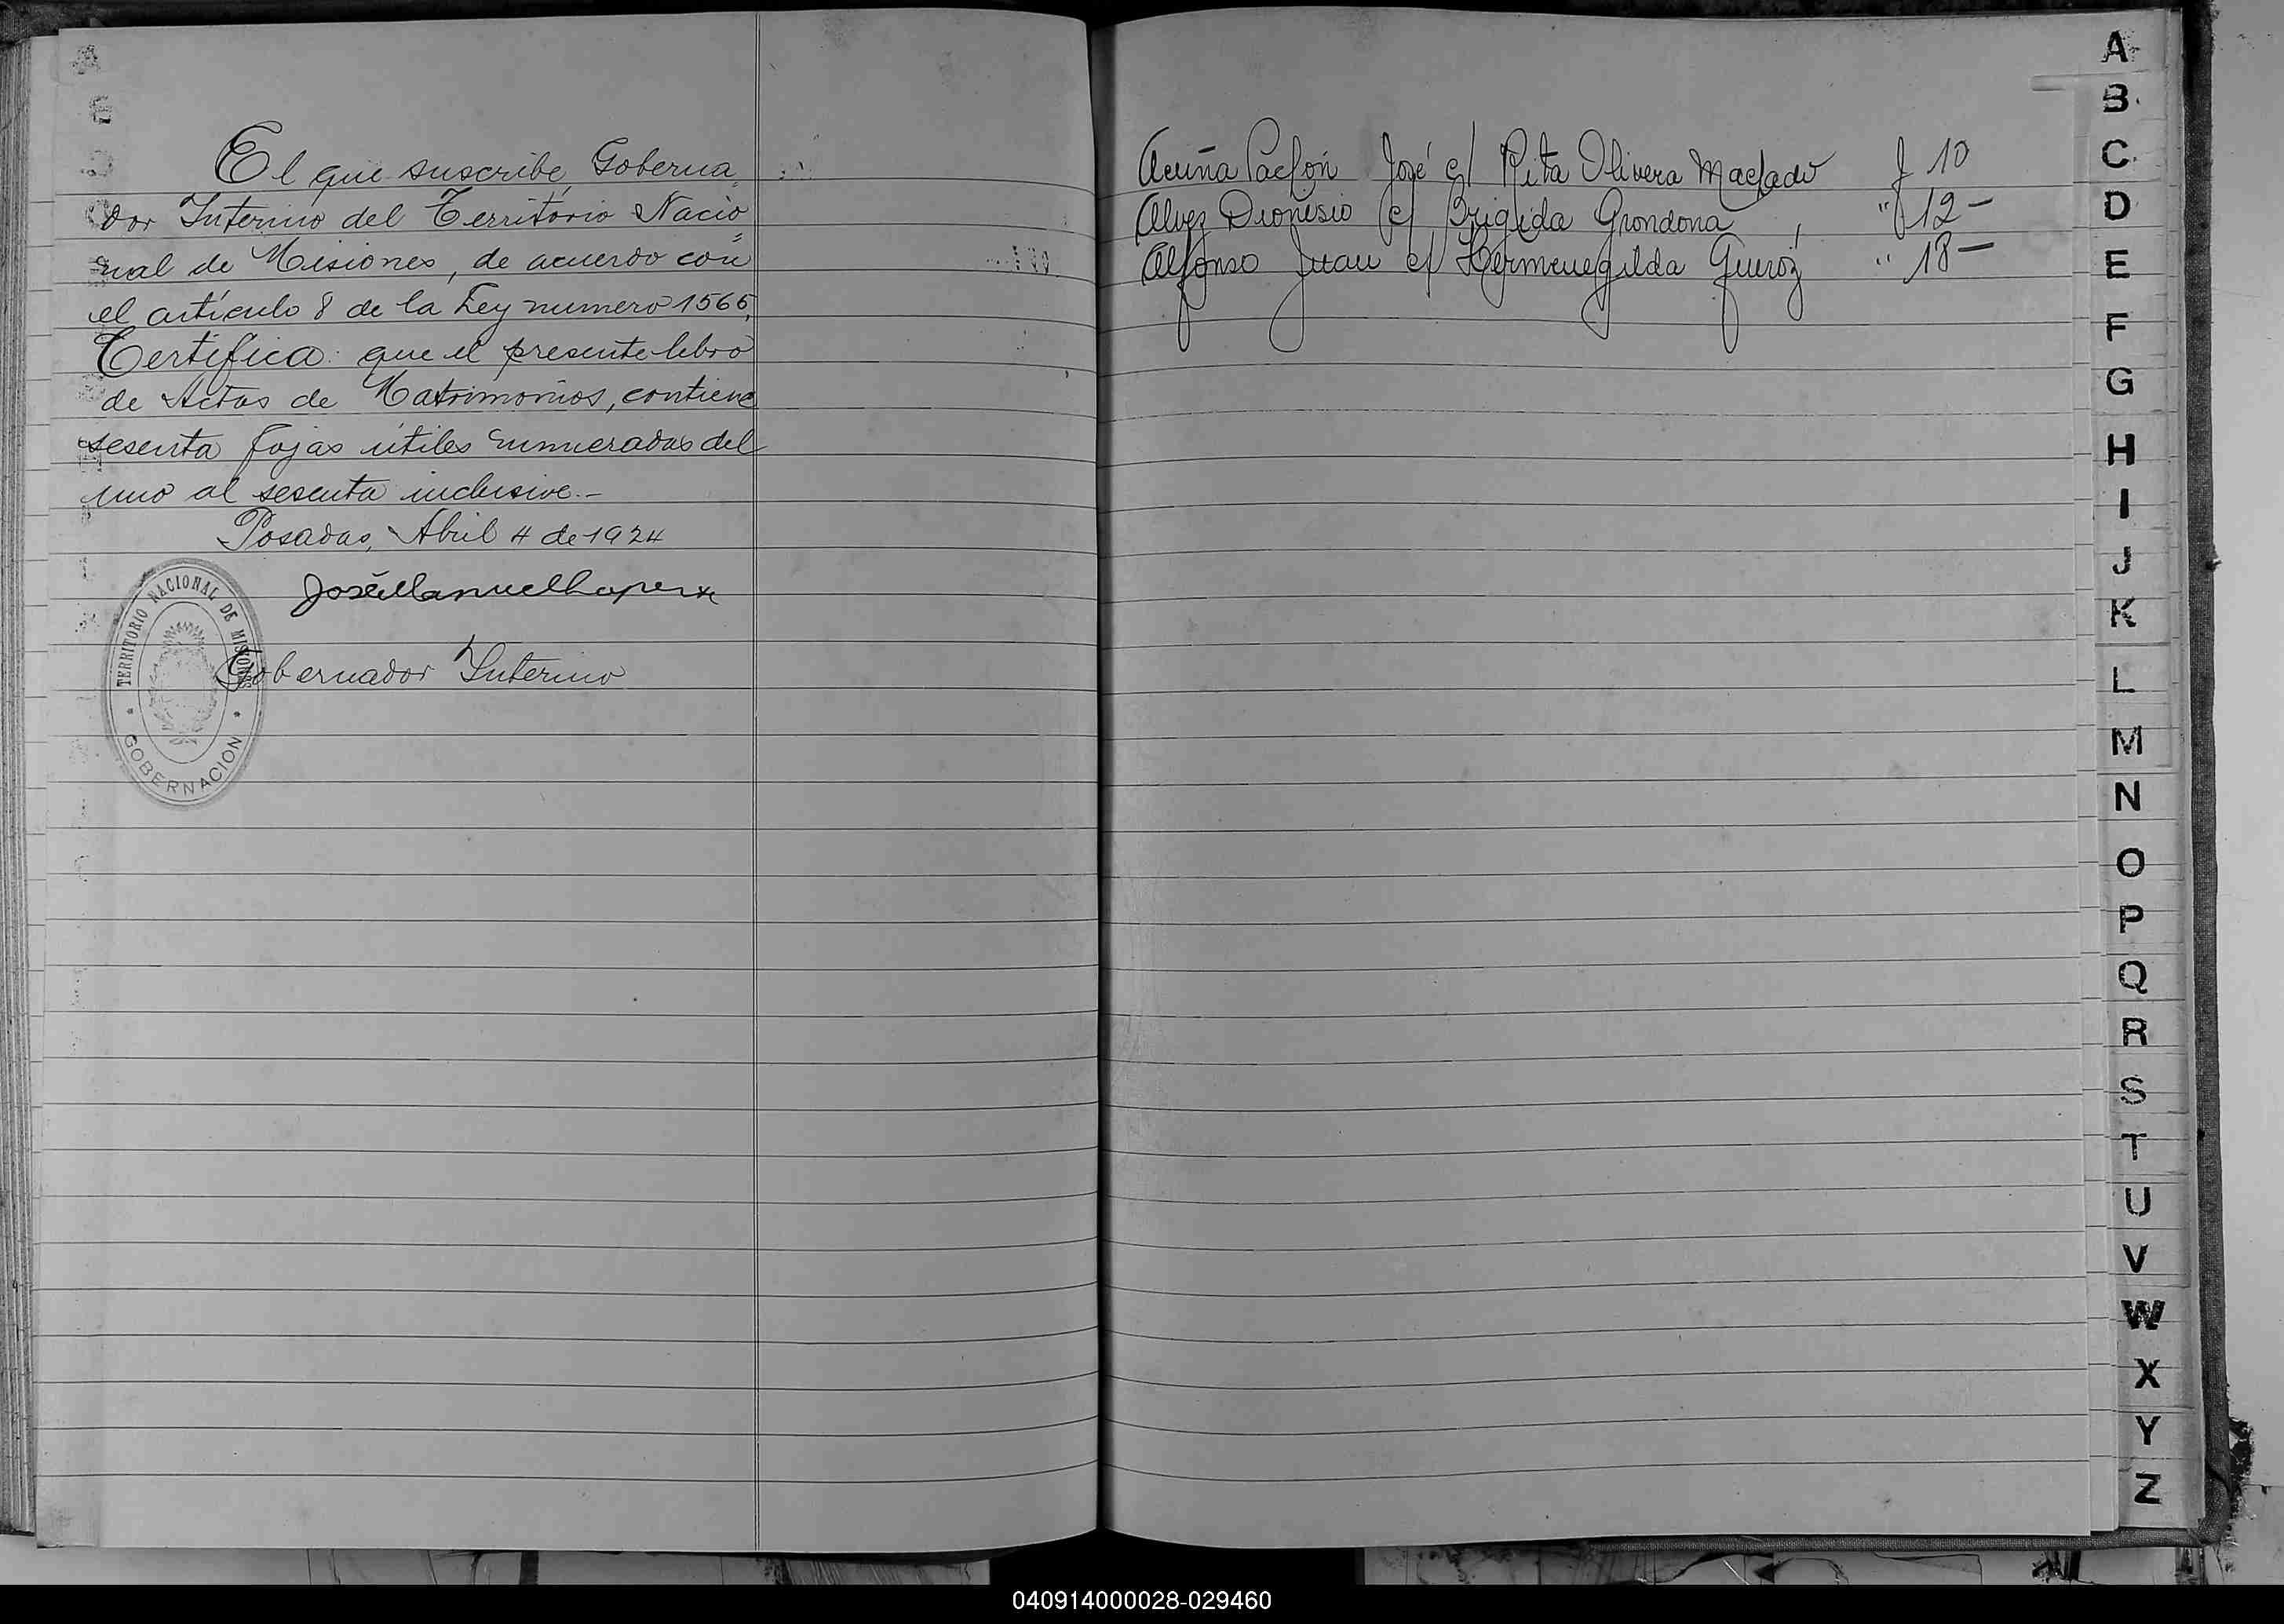 El que suscribe, Goberna_
dor Interino del Territorio Nacio_
nal de Misiones, de acuerdo con
el artículo 8 de la Ley numero 1565,
Certifica: que el presente libro
de Actas de Matrimonios, contiene
sesenta fojas útiles enumeradas del
uno al sesenta inclusive.-
Posadas, Abril 4 de 1924
José Manuel
Gobernador Interino
TERRITORIO NACIONAL DE MISIONES
GOBERNACIÓN
Acuña José c/ Rita Olivera Machado f 10
Alvez Dionisio c/ Brigida Grondona " f 12 -
Alfonso Juan c/ Hermenegilda Queiróz " 18 -
A
B
C
D
E
F
G
H
I
J
K
L
M
N
O
P
Q
R
S
T
U
V
W
X
Y
Z
040914000028-029460